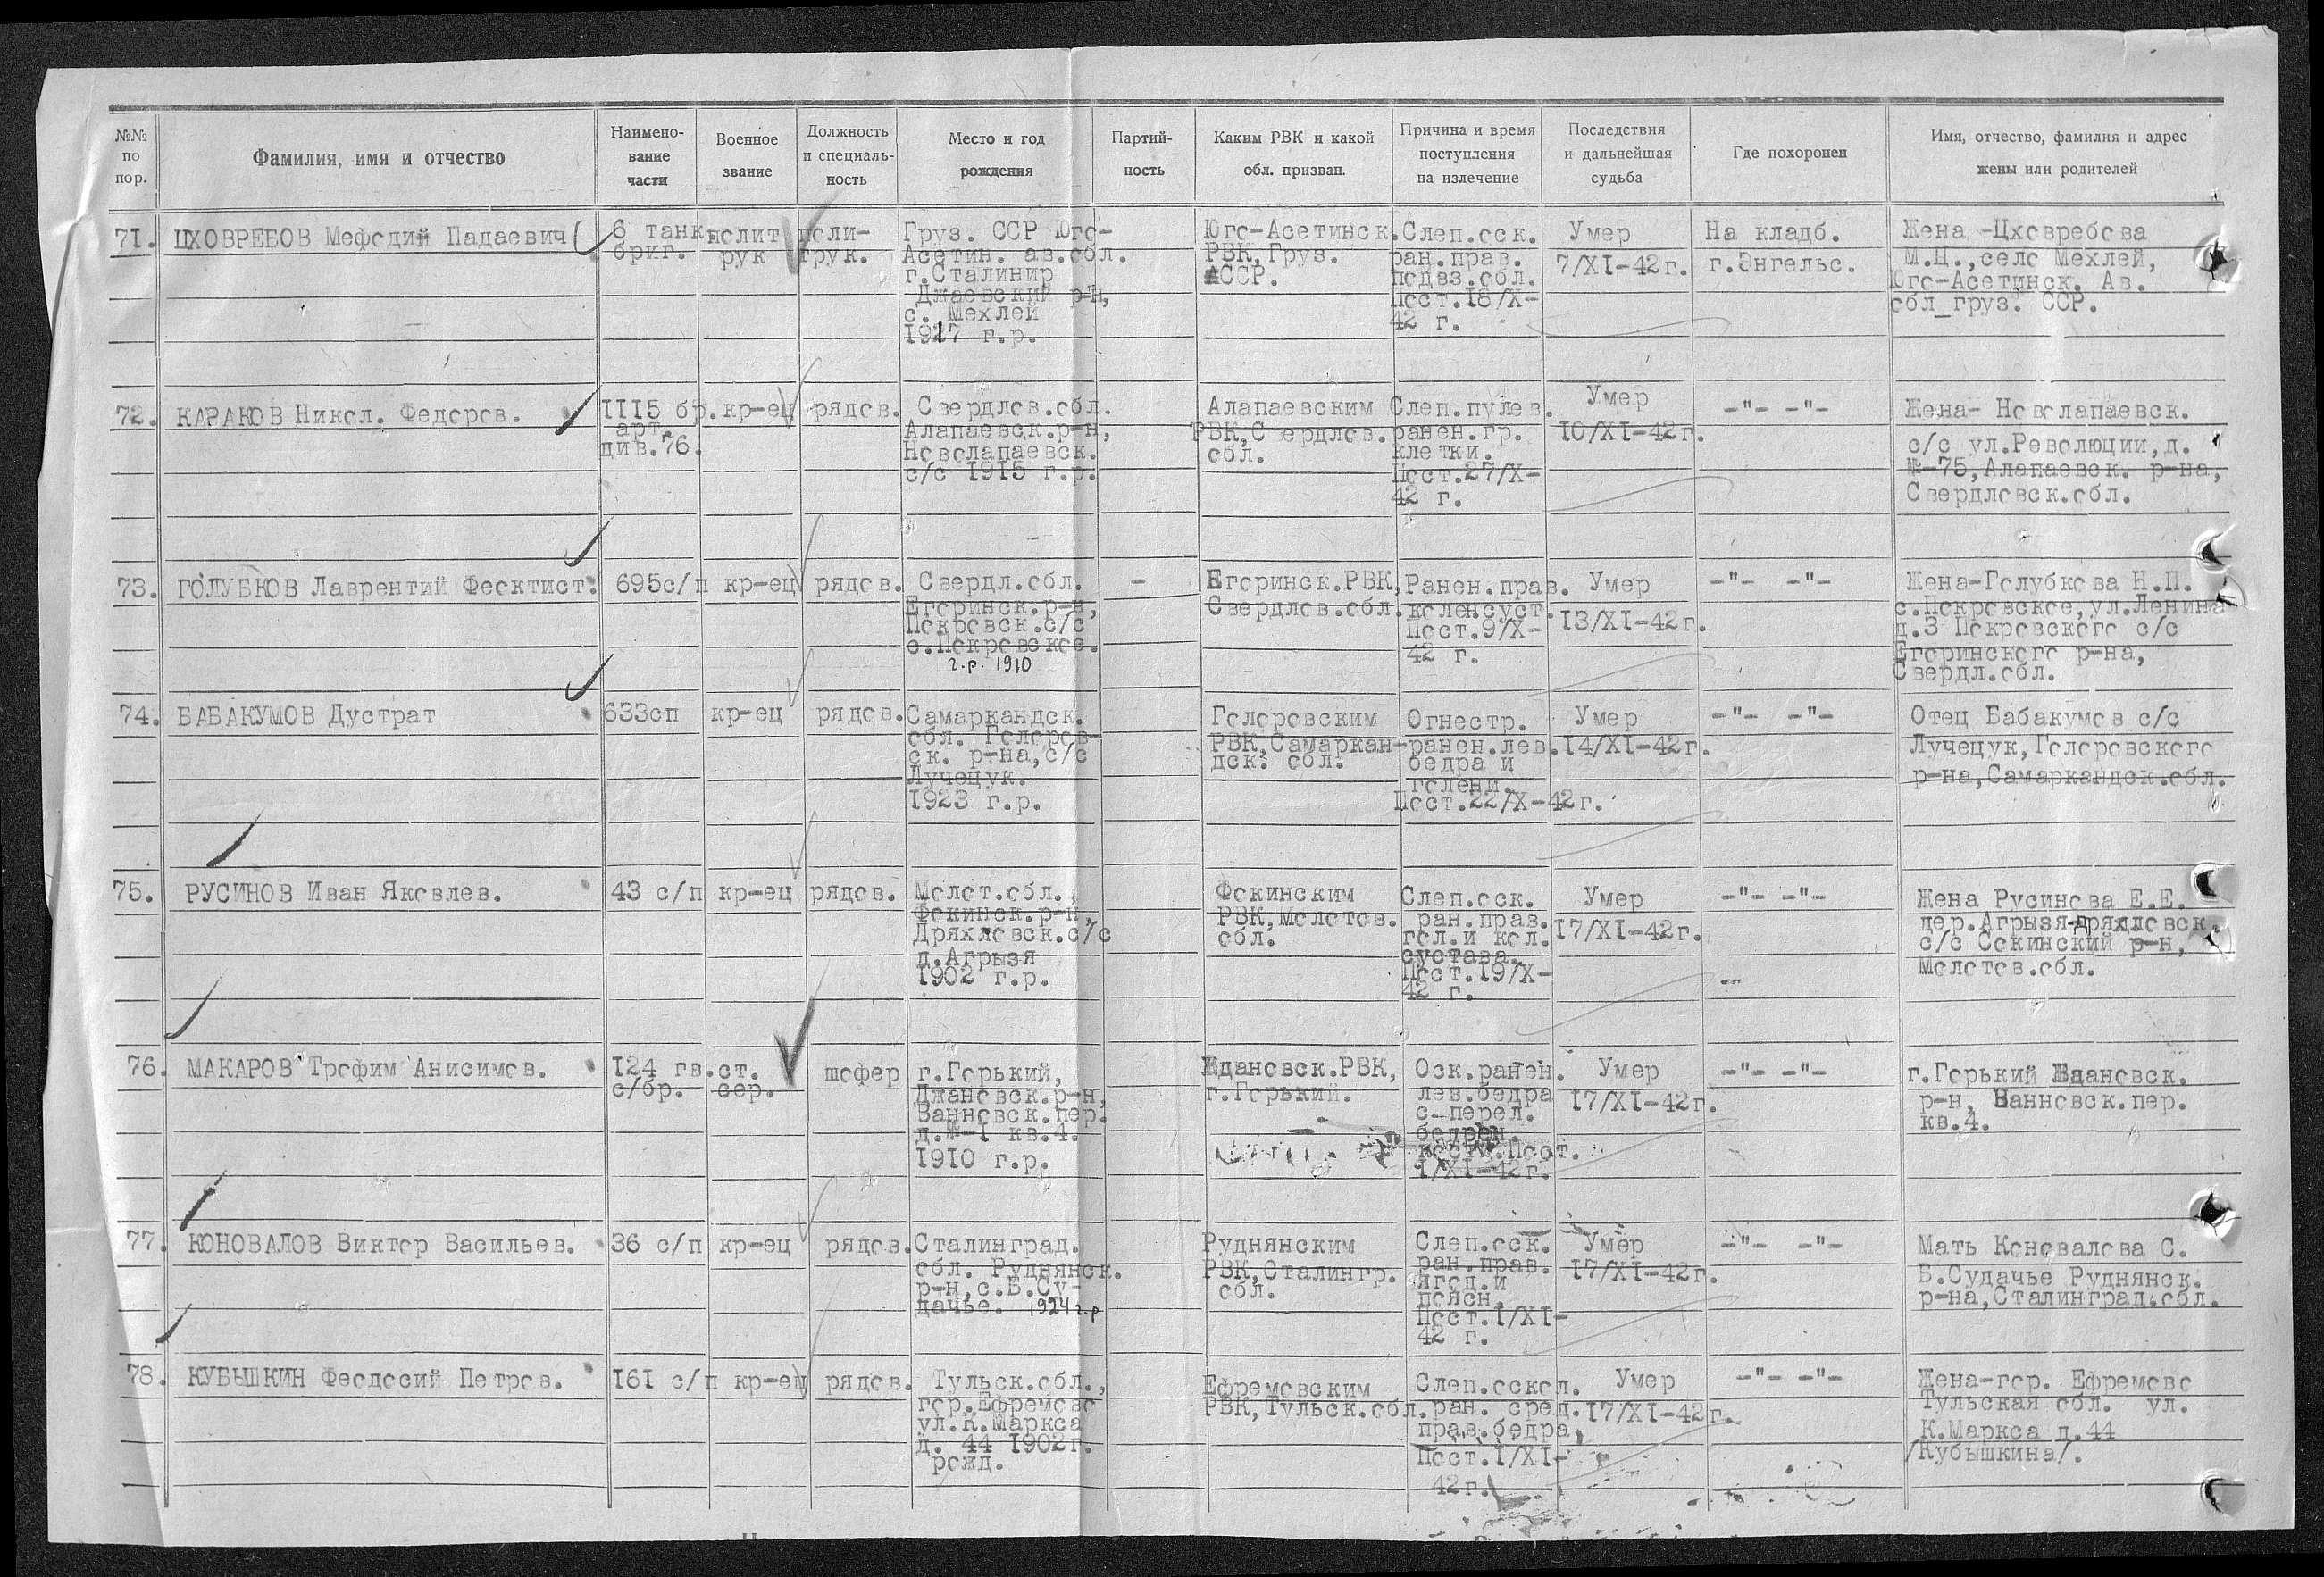 №№ по пор.
Фамилия, имя и отчество
Наимено-
вание
части
Военное
звание
Должность
и специаль-
ность
Место и год
рождения
Партий-
ность
Каким РВК и какой
обл. призван.
Причина и время
поступления
на излечение
Последствия
и дальнейшая
судьба
Где похоронен
Имя, отчество, фамилия и адрес
жены или родителей
71.
ЦХОВРЕБОВ Мефодий Падаевич
6 танк.
бриг.
полит
рук
поли-
трук.
Груз. ССР Юго-
Асетин. ав.обл.
г.Сталинир
Джаевский р-н,
с. Мехлей
1917 г.р.
Юго-Асетинск.
РВК,Груз.
АССР.
Слеп.оск.
ран.прав.
подвз.обл.
Пост.18/X-
42 г.
Умер
7/XI-42г.
На кладб.
г.Энгельс.
Жена -Цховребова
М.Ц.,село Мехлей,
Юго-Асетинск. Ав.
обл_груз. ССР.
72.
КАРАКОВ Никол. Федоров.
1115 бр.
арт.
див.76.
кр-ец
рядов.
Свердлов.обл.
Алапаевск.р-н,
Новолапаевск.
с/с 1915 г.р.
Алапаевским
РВК,С ердлов.
обл.
Слеп.пулев.
ранен.гр.
клетки.
Пост.27/X-
42 г.
Умер
10/XI-42г.
-"- -"-
Жена- Новолапаевск.
с/с ул.Революции,д.
№-75,Алапаевск. р-на,
Свердловск.обл.
73.
ГОЛУБКОВ Лаврентий Феоктист.
695с/п
кр-ец
рядов.
Свердл.обл.
Егоринск.р-н,
Покровск.с/с
с.Покровское.
г.р. 1910
-
Егоринск.РВК,
Свердлов.обл.
Ранен.прав.
колен.суст.
Пост.9/X-
42 г.
Умер
13/XI-42г.
-"- -"-
Жена-Голубкова Н.П.
с.Покровское,ул.Ленина
д.3 Покровского с/с
Егоринского р-на,
Свердл.обл.
74.
БАБАКУМОВ Дустрат
633сп
кр-ец
рядов.
Самаркандск.
обл. Голоров-
ск. р-на,с/с
Лучецук.
1923 г.р.
Голоровским
РВК,Самаркан-
дск. обл.
Огнестр.
ранен.лев.
бедра и
голени.
Пост.22/X-42г.
Умер
14/XI-42г.
-"- -"-
Отец Бабакумов с/с
Лучецук,Голоровского
р-на,Самаркандск.обл.
75.
РУСИНОВ Иван Яковлев.
43 с/п
кр-ец
рядов.
Молот.обл.,
Фокинск.р-н,
Дряхловск.с/с
д.Агрызя
1902 г.р.
Фокинским
РВК,Молотов.
обл.
Слеп.оск.
ран.прав.
гол.и кол.
сустава.
Пост.19/X-
42 г.
Умер
17/XI-42г.
-"- -"-
Жена Русинова Е.Е.
дер.Агрызя-дряхловск.
с/с Сокинский р-н,
Молотов.обл.
76.
МАКАРОВ Трофим Анисимов.
124 гв.
с/бр.
ст.
сер.
шофер
г.Горький,
Джановск.р-н,
Ванновск.пер.
д.№-1 кв.4.
1910 г.р.
Ждановск.РВК,
г.Горький.
Оск.ранен.
лев.бедра
с перел.
бедрен.
кости.Пост.
1/XI-42г.
Умер
17/XI-42г.
-"- -"-
г.Горький Ждановск.
р-н, Ванновск.пер.
кв.4.
77.
КОНОВАЛОВ Виктор Васильев.
36 с/п
кр-ец
рядов.
Сталинград.
обл. Руднянск.
р-н,с.Б.Су-
дачье. 1924 г.р
Руднянским
РВК,Сталингр.
обл.
Слеп.оск.
ран.прав.
ягод.и
поясн.
Пост.1/XI-
42 г.
Умер
17/XI-42г.
-"- -"-
Мать Коновалова С.
Б.Судачье Руднянск.
р-на,Сталинград.обл.
78.
КУБЫШКИН Феодосий Петров.
161 с/п
кр-ец
рядов.
Тульск.обл.,
гор.Ефремово
ул.К.Маркса
д. 44 1902г.
рожд.
Ефремовским
РВК,Тульск.обл.
Слеп.оскол.
ран. сред.
прав.бедра.
Пост.1/XI-
42г.
Умер
17/XI-42г.
-"- -"-
Жена-гор. Ефремово
Тульская обл. ул.
К.Маркса д.44
/Кубышкина/.